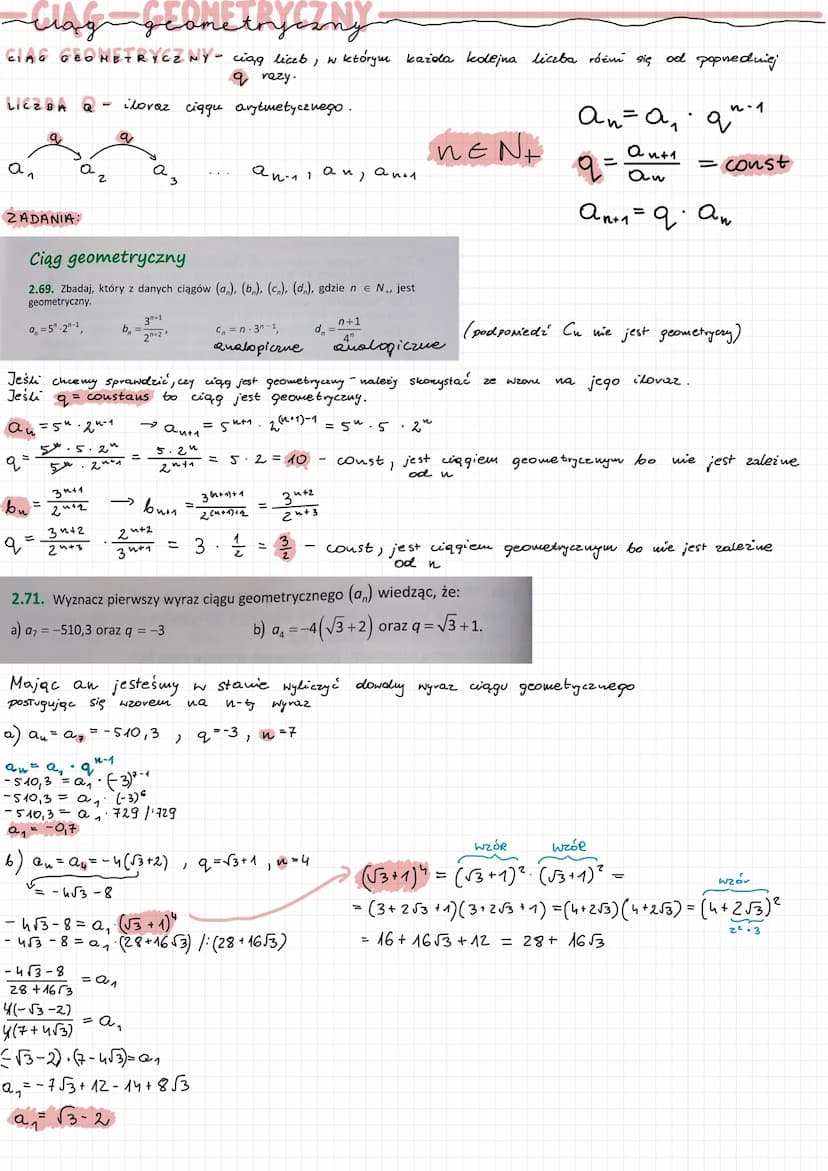 CIĄG GEOMETRYCZNY
ciąg geometryczny
CIĄG GEOMETRYCZNY - ciąg liczb, w którym każda kolejna liczba różni się od poprzedniej
q razy.
LICZBA Q - iloraz ciągu arytmetycznego.
q q
a₁ a₂ a₃ ... aₙ₋₁, aₙ, aₙ₊₁
n ∈ N₊
aₙ = a₁ · qⁿ⁻¹
q = aₙ₊₁ / aₙ = const
aₙ₊₁ = q · aₙ
ZADANIA:
Ciąg geometryczny
2.69. Zbadaj, który z danych ciągów (aₙ), (bₙ), (cₙ), (dₙ), gdzie n ∈ N₊, jest
geometryczny.
aₙ = 5ⁿ · 2ⁿ⁻¹, bₙ = 3ⁿ⁺¹ / 2ⁿ⁺², cₙ = n · 3ⁿ⁻¹, dₙ = n+1 / 4ⁿ
analogiczne analogiczne
(podpowiedź Cn nie jest geometryczny)
Jeśli chcemy sprawdzić, czy ciąg jest geometryczny - należy skorzystać ze wzoru na jego iloraz.
Jeśli q = constans to ciąg jest geometryczny.
aₙ = 5ⁿ · 2ⁿ⁻¹ → aₙ₊₁ = 5ⁿ⁺¹ · 2⁽ⁿ⁺¹⁾⁻¹ = 5ⁿ · 5 · 2ⁿ
q = 5ⁿ · 5 · 2ⁿ / 5ⁿ · 2ⁿ⁺¹ = 5 · 2ⁿ / 2ⁿ⁺¹ = 5 · 2 = 10 - const, jest ciągiem geometrycznym bo nie jest zależne
od n
bₙ = 3ⁿ⁺¹ / 2ⁿ⁺² → bₙ₊₁ = 3⁽ⁿ⁺¹⁾⁺¹ / 2⁽ⁿ⁺¹⁾⁺² = 3ⁿ⁺² / 2ⁿ⁺³
q = 3ⁿ⁺² / 2ⁿ⁺³ · 2ⁿ⁺² / 3ⁿ⁺¹ = 3 · 1/2 = 3/2 - const, jest ciągiem geometrycznym bo nie jest zależne
od n
2.71. Wyznacz pierwszy wyraz ciągu geometrycznego (aₙ) wiedząc, że:
a) a₇ = −510,3 oraz q = −3 b) a₄ = −4(√3+2) oraz q = √3+1.
Mając an jesteśmy w stanie wyliczyć dowolny wyraz ciągu geometrycznego
posługując się wzorem na n-ty wyraz
a) aₙ = a₇ = -510,3 , q=-3, n=7
aₙ = a₁ · qⁿ⁻¹
-510,3 = a₁ · (-3)⁷⁻¹
-510,3 = a₁ · (-3)⁶
-510,3 = a₁ · 729 /:729
a₁ = -0,7
b) aₙ = a₄ = -4(√3+2) , q=√3+1 , n=4
= -4√3 -8
-4√3 -8 = a₁ · (√3+1)⁴
-4√3 -8 = a₁ · (28+16√3) /:(28+16√3)
-4√3-8 / 28+16√3 = a₁
4(-√3-2) / 4(7+4√3) = a₁
(-√3-2)·(7-4√3)=a₁
a₁ = -7√3 + 12 - 14 + 8√3
a₁ = √3 - 2
wzór wzór
(√3+1)⁴ = (√3+1)² · (√3+1)² =
wzór
= (3+2√3+1)(3+2√3+1) = (4+2√3)(4+2√3) = (4+2√3)²
2²·3
= 16 + 16√3 + 12 = 28 + 16√3